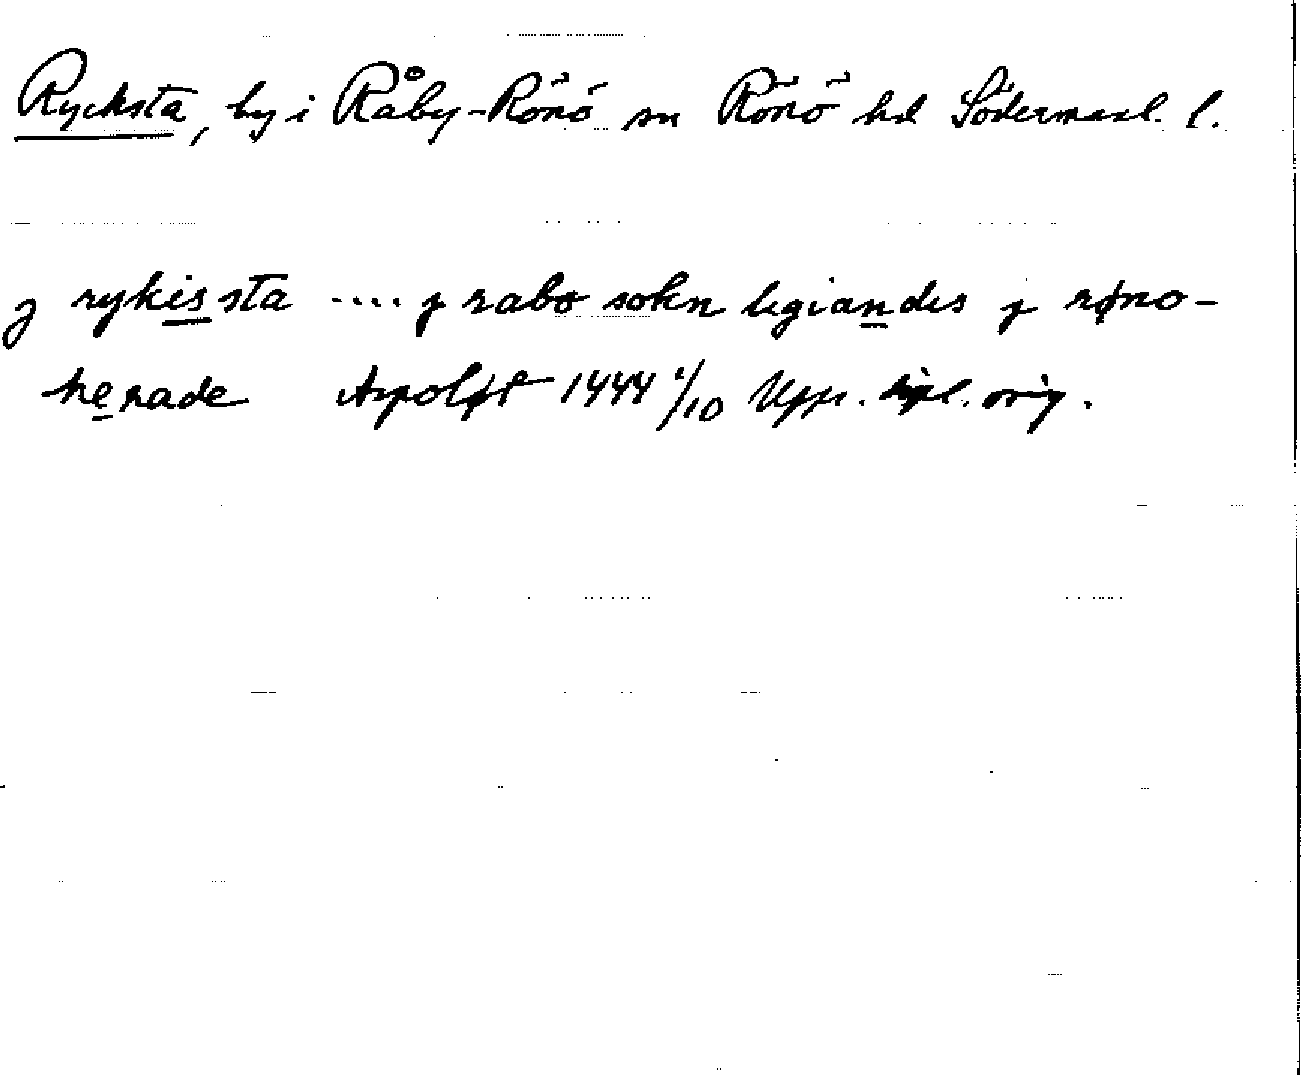 Rycksta, by i Råby-Rönö sn Rönö hd Södermanl. l.
j rykissta .... j rabo sokn legiandes j røno-
herade 1444 1/10 Upps. dipl. orig.